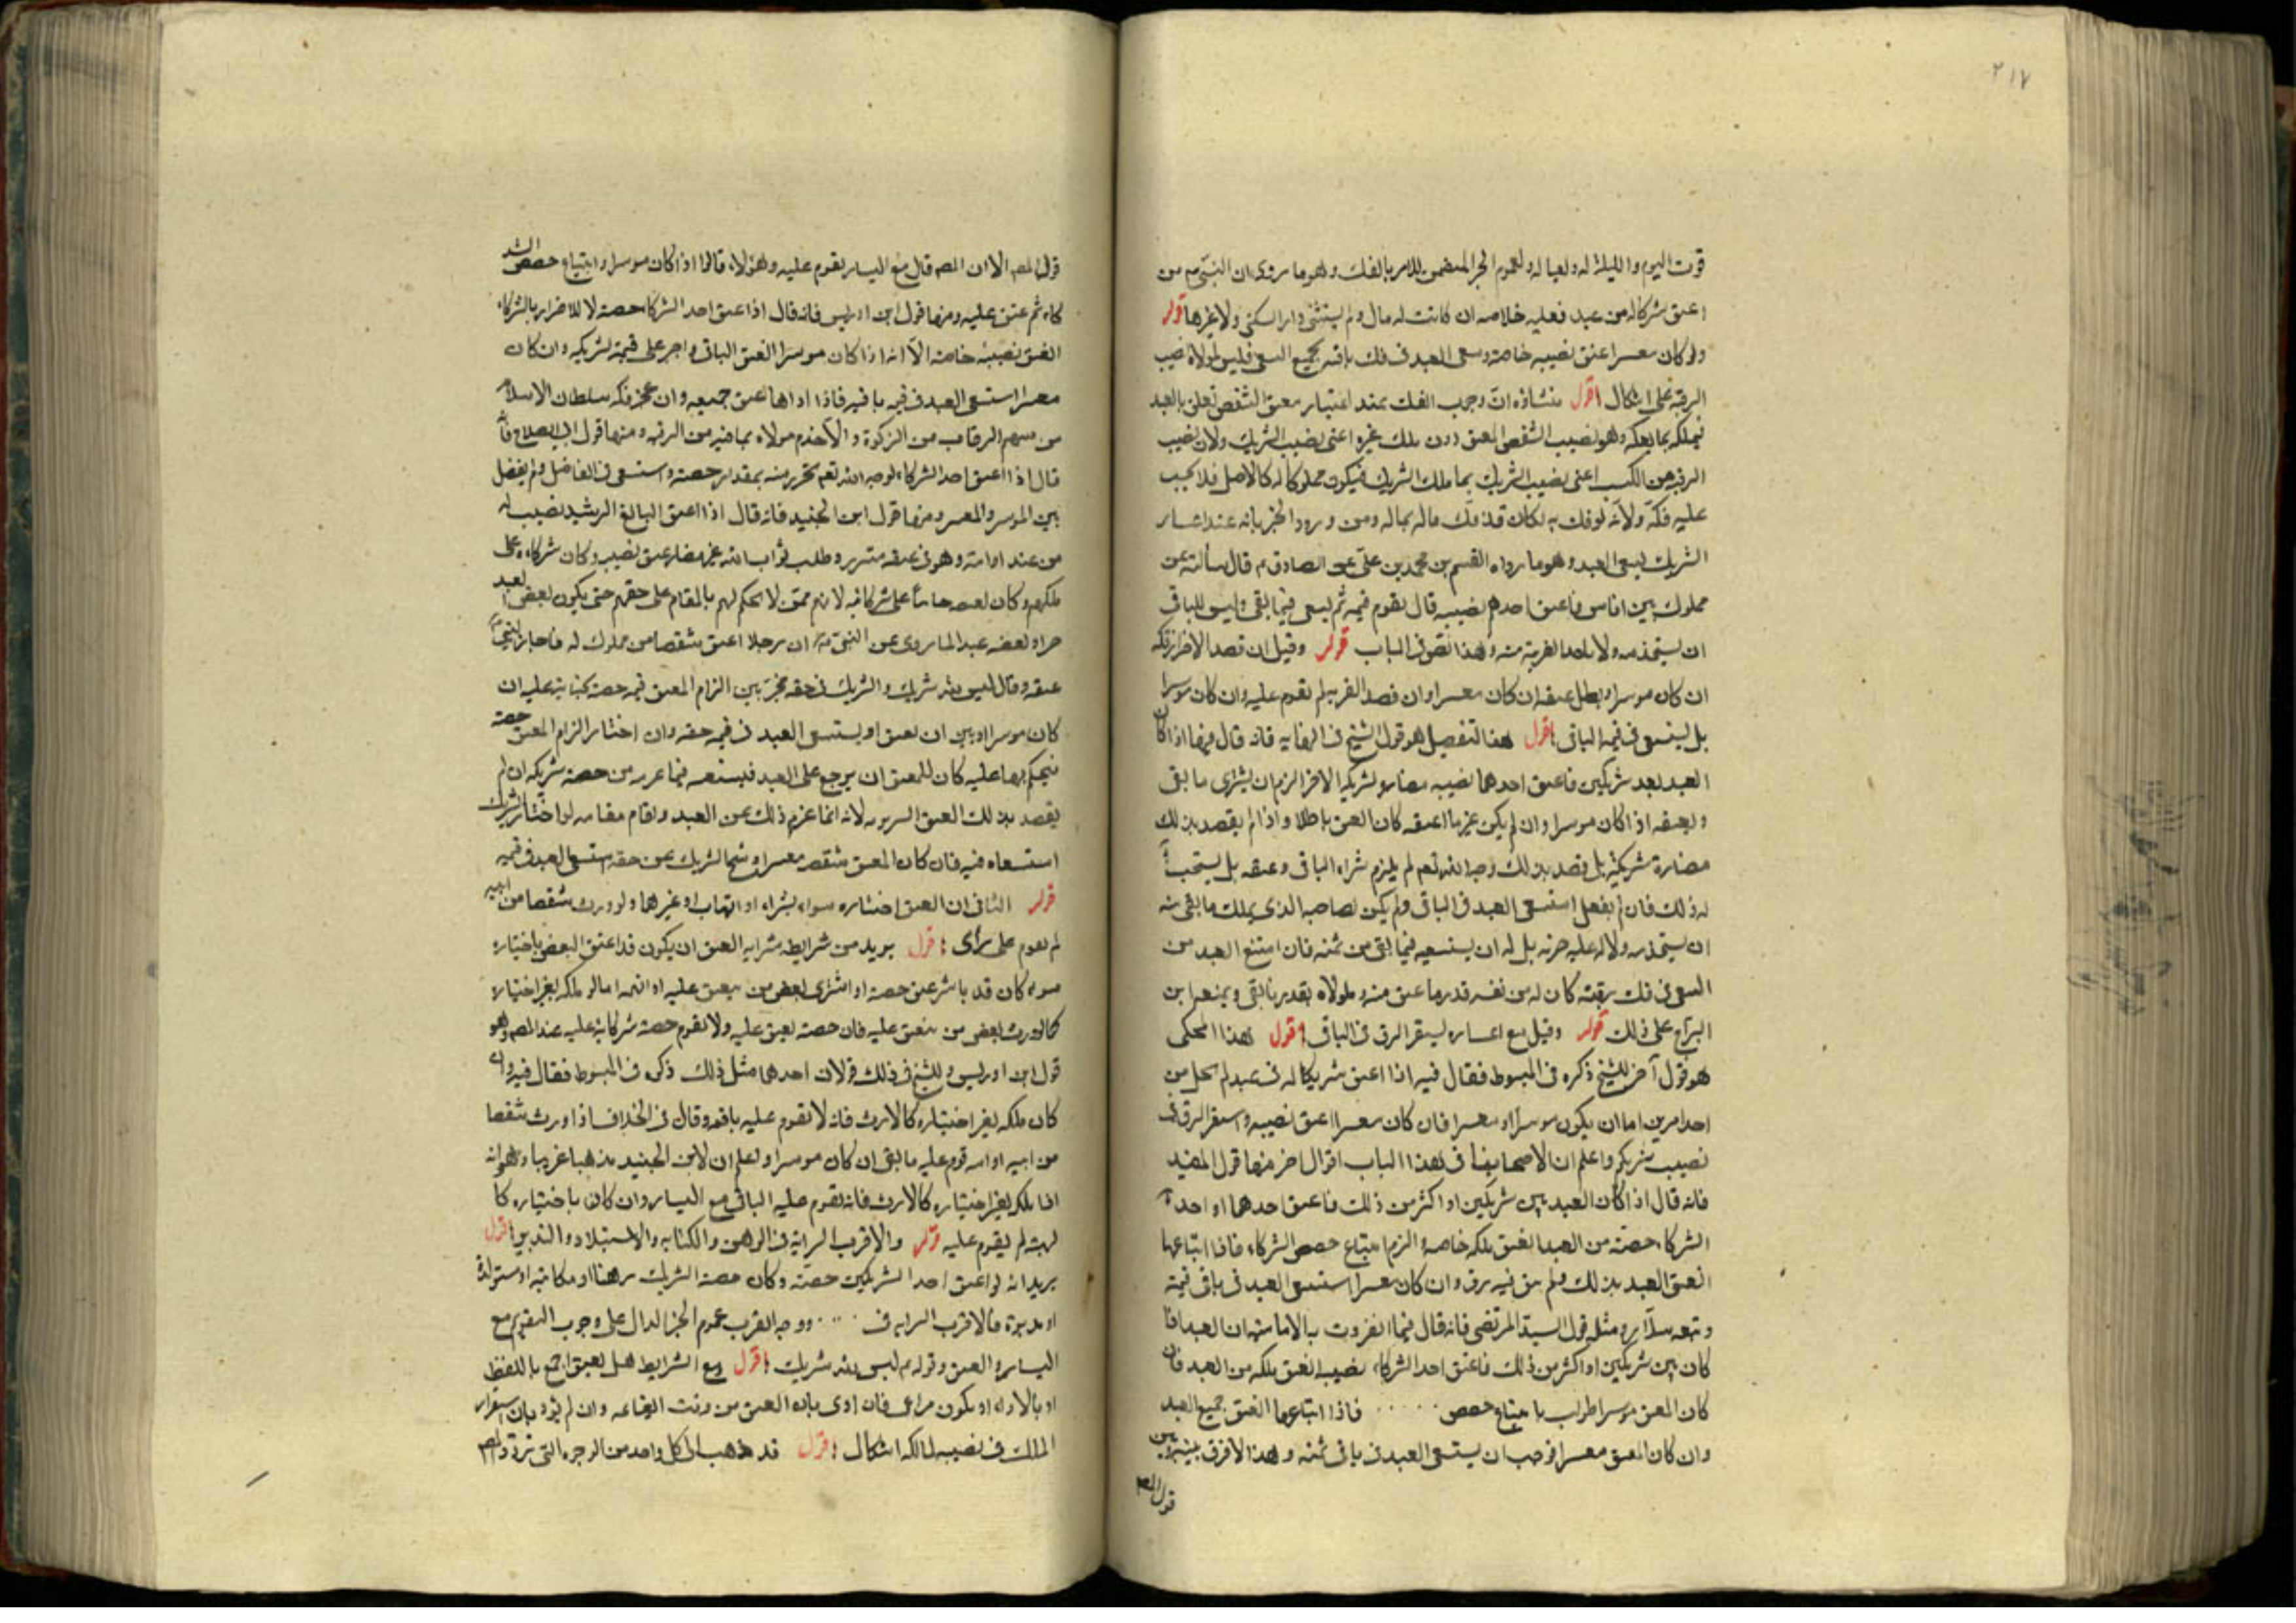 ٢١٧
قوت اليوم والليلة له ولعياله ولعموم الخبر المتضمن للامر بالفك وهو ما روى ان النبي م من
اعتق شركا له من عبد فعليه خلاصه ان كانت له مال ولم يستثنى دار السكنى ولا غيرها قوله
ولو كان معسرا عتق نصيبه خاصة وسعى العبد في فك باقيه بجميع السعى فليس لمولاه نصيب
الرقية على اشكال اقول منشاؤه ان وجوب الفك عند اعتبار معتق الشقص تعلق بالعبد
فيملكه بما يملكه وهو نصيب الشقص المعتق دون ملك غيره اعنى نصيب الشريك ولان نصيب
الرقية من الكسب اعنى نصيب الشريك بما ملك الشريك فيكون مملوكا له كالاصل فلا يجب
عليه فكه ولانه لو فك به لكان قد فك ماله بماله ومن ورود الخبر بانه عند اعسار
الشريك يسعى العبد وهو ما رواه القسم بن محمد بن على عن الصادق م قال سألته عن
مملوك بين اناس فاعتق احدهم نصيبه قال يقوم قيمه ثم يسعى فيما بقى وليس للباقى
ان يستخدمه ولا ياخذ الضريبة منه وهذا نص في الباب قوله وقيل ان قصد الاضرار فكه
ان كان موسرا وبطل عتقه ان كان معسرا وان قصد القربة لم يقوم عليه وان كان موسرا
بل يستسعى في قيمة الباقى اقول هذا التفصيل هو قول الشيخ في النهايه فانه قال فيها اذا كان
العبد بعد شريكين فاعتق احدهما نصيبه مضارة لشريكه الاخر الزم ان يشترى ما بقى
ويعتقه اذا كان موسرا وان لم يكن غير ما اعتقه كان العتق باطلا واذا لم يقصد بذلك
مضارة شريكه بل قصد بذلك وجه الله تعم لم يلزم شراء الباقى وعتقه بل يستحب
له ذلك فان لم يفعل استسعى العبد في الباقى ولم يكن لصاحبه الذى يملك ما بقى منه
ان يستخدمه ولا له عليه ضريبة بل له ان يستسعيه فيما بقى من ثمنه فان امتنع العبد من
السعى في فك رقبته كان له من نفسه قدر ما عتق منه ولمولاه بقدر ما بقى وبمعناه ابن
البراج على ذلك قوله وقيل مع اعساره يستقر الرق في الباقى اقول هذا المحكى
هو قول آخر للشيخ ذكره في المبسوط فقال فيه اذا اعتق شريكا له في عبد لم يخل من
احد امرين اما ان يكون موسرا او معسرا فان كان معسرا اعتق نصيبه واستقر الرق في
نصيب شريكه واعلم ان لاصحابنا في هذا الباب اقوال اخر منها قول المفيد
فانه قال اذا كان العبد بين شريكين او اكثر من ذلك فاعتق احدهما او احد
الشركاء حصته من العبد انعتق ملكه خاصة والزم ابتياع حصص الشركاء فاذا ابتاعها
انعتق العبد بذلك ولم يبق فيه رق وان كان معسرا استسعى العبد في باقى قيمته
وتبعه سلار ومثله قول السيد المرتضى فانه قال فيما انفردت به الاماميه ان العبد اذا
كان بين شريكين او اكثر من ذلك فاعتق احد الشركاء نصيبه انعتق ملكه من العبد فان
كان المعتق موسرا طولب بابتياع حصص ..... فاذا ابتاعها انعتق جميع العبد
وان كان المعتق معسرا فوجب ان يستسعى العبد في باقى ثمنه وهذا لا فرق بينه وبين
قول المصـ
قول المصـ الا ان المصـ قال مع اليسار يقوم عليه وهؤلاء قالوا اذا كان موسرا وابتياع حصص الشر
كاء ثم عتق عليه ومنها قول ابن ادريس فانه قال اذا اعتق احد الشركاء حصته لا للاضرار بالشركاء
انعتق نصيبه خاصة الا انه اذا كان موسرا انعتق الباقى واجبر على قيمته لشريكه وان كان
معسرا استسعى العبد في قيمة باقيه فاذا اداها عتق جميعه وان عجز فكه سلطان الاسلام
من سهم الرقاب من الزكوة والا خدم مولاه بما فيه من الرقية ومنها قول ابى الصلاح فانه
قال اذا اعتق احد الشركاء لوجه الله تعم تحرر منه بمقدار حصته واستسعى في الفاضل ولم يفصل
بين الموسر والمعسر ومنها قول ابن الجنيد فانه قال اذا اعتق البالغ الرشيد نصيب له
من عبد او امة وهو في عتقه متبرر وطلب ثواب الله غير مضار عتق نصيبه وكان شركاه على
ملكهم وكان بعتقه جانيا على شركائه لانهم ممن لا يحكم لهم بالمقام على حقهم حتى يكون بعض العبد
حرا وبعضه عبد لما روى عن النبي ص ان رجلا اعتق شقصا من مملوك له فاجاز النبي م
عتقه وقال ليس لله شريك والشريك في حقه مخير بين الزام المعتق قيمة حصته بجنايته عليه ان
كان موسرا وبين ان يعتق او يستسعى العبد في قيمة حقه وان اختار الزام المعتق حصته
فيحكم بها عليه كان للمعتق ان يرجع على العبد فيستسعيه فيما غرمه من حصة شريكه ان لم
يقصد بذلك العتق السرور لانه انما غرم ذلك عن العبد وقام مقامه لو اختار الشريك
استسعاه فيه فان كان المعتق شقصه معسرا وشح الشريك عن حقه استسعى العبد في قيمه
قوله الثانى ان العتق اختياره سواء بشراء او اتهاب او غيرهما ولو ورث شقصا من ابيه
لم يقوم على راى اقول يريد من شرايطه سراية العتق ان يكون قد اعتق البعض باختياره
سواء كان قد باشر عتق حصته او اشترى بعض من ينعتق عليه او اتهبه اما لو ملكه بغير اختياره
كما لو ورث بعض من ينعتق عليه فان حصته يعتق عليه ولا يقوم حصة شركائه عليه عند المصـ وهو
قول ابن ادريس وللشيخ في ذلك قولان احدهما مثل ذلك ذكره في المبسوط فقال فيه وان
كان ملكه بغير اختياره كالارث فانه لا يقوم عليه باقيه وقال في الخلاف اذا ورث شقصا
من ابيه او امه قوم عليه ما بقى ان كان موسرا واعلم ان لابن الجنيد مذهبا غريبا وهو انه
اذا ملكه بغير اختياره كالارث فانه يقوم عليه الباقى مع اليسار وان كان باختياره كا
لهبة لم يقوم عليه قوله والاقرب السراية في الرهن والكتابه والاستيلاد والتدبير اقول
يريد انه لو اعتق احد الشريكين حصته وكان حصة الشريك رهنا او مكاتبه او مستولدة
او مدبرة فالاقرب السرايه في ..... ووجه القرب عموم الخبر الدال على وجوب التقويم مع
اليسار والعتق وقوله م ليس لله شريك اقول ومع الشرايط هل يعتق اجمع باللفظ
او بالاداء او يكون مراعى فان ادى بان العتق من وقت ايقاعه وان لم يؤد بان استقرار
الملك في نصيبه لمالكه اشكال اقول قد ذهب الى كل واحد من الوجوه التى تردد فيها المصـ